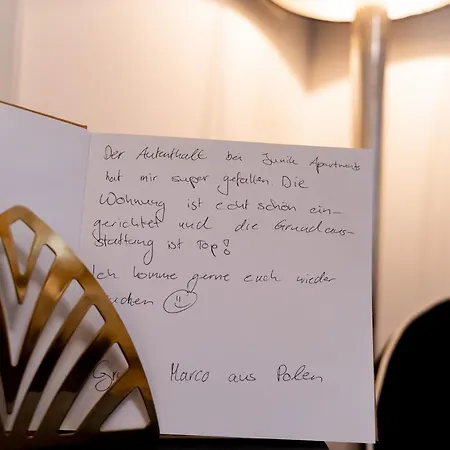 Der Aufenthalt bei Junik Apartments
hat mir super gefallen. Die
Wohnung ist echt schön ein-
gerichtet und die Grundaus-
stattung ist Top!
Ich komme gerne euch wieder
suchen ☺
Marco aus Polen